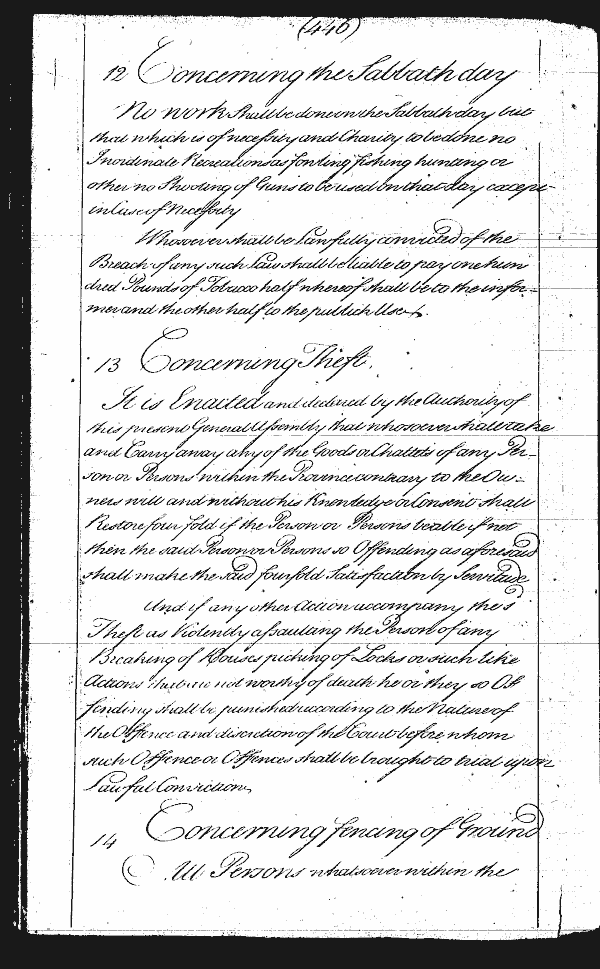 (446)
12 Concerning the Sabbath day
No work shall be done on the Sabbath day but
that which is of necessity and Charity to be done no
Inordinate Recreations as fowling fishing hunting or
other no Shooting of Guns to be used on that day except
in Case of Necessity
Whosoever shall be Lawfully convicted of the
Breach of any such Law shall be liable to pay one hun
dred Pounds of Tobacco half whereof shall be to the infor=
mer and the other half to the publick Use
13 Concerning Theft.
It is Enacted and declared by the Authority of
this present General Assembly that whosoever shall take
and Carry away any of the Goods or Chattels of any Per-
son or Persons within the Province contrary to the Ow=
ners will and without his Knowledge or Consent shall
Restore four fold if the Person or Persons be able if not
then the said Person or Persons so Offending as aforesaid
shall make the said fourfold Satisfaction by Servitude
And if any other Action accompany the s
Theft as Violently assaulting the Person of any
Breaking of Houses picking of Locks or such like
Actions that are not worthy of death he or they so Of
fending shall be punished according to the Nature of
the Offence and discretion of the Court before whom
such Offence or Offences shall be brought to trial upon
Lawful Conviction
14 Concerning fencing of Ground
All Persons whatsoever within the